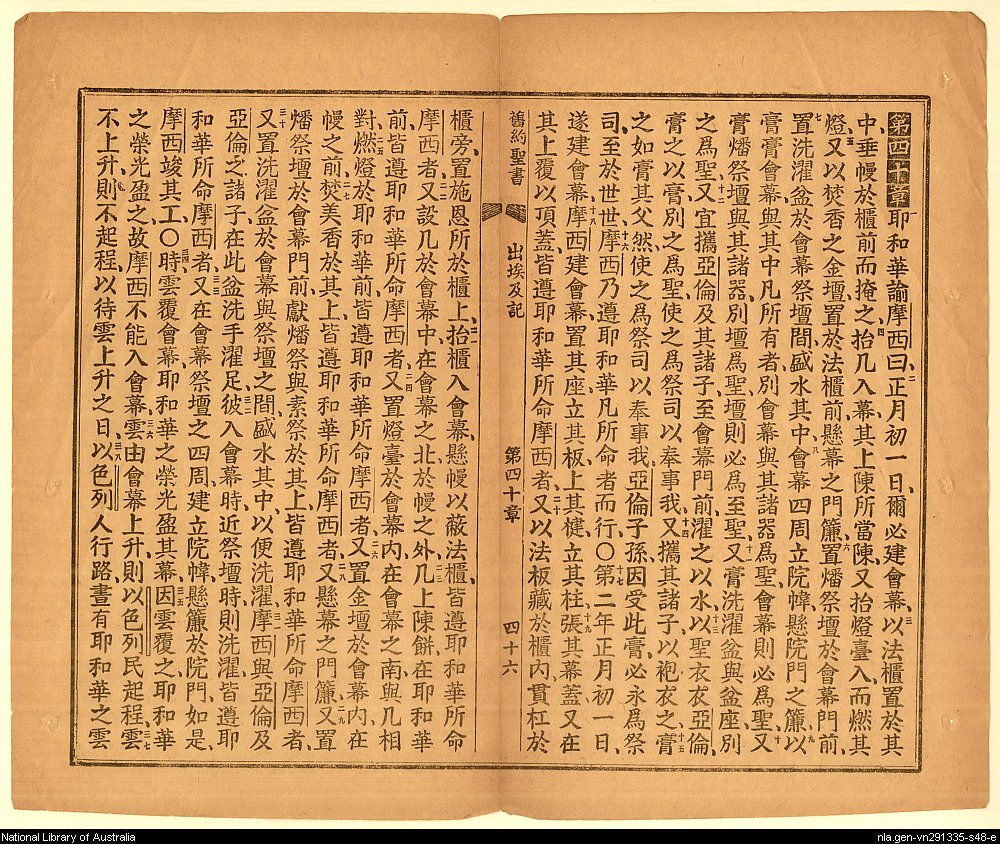 第四十章耶和華諭摩西曰正月初一日爾必建會幕以法櫃置於其
中垂幔於櫃前而掩之抬几入幕其上陳所當陳又抬燈臺入而燃其
燈又以焚香之金壇置於法櫃前懸幕之門簾置燔祭壇於會幕門前
置洗濯盆於會幕祭壇間盛水其中會幕四周立院幃懸院門之簾以
膏膏會幕與其中凡所有者別會幕與其諸器爲聖會幕則必爲聖又
膏燔祭壇與其諸器別壇爲聖壇則必爲至聖又膏洗濯盆與盆座別
之爲聖又宜攜亞倫及其諸子至會幕門前濯之以水以聖衣衣亞倫
膏之以膏別之爲聖使之爲祭司以奉事我又攜其諸子以袍衣之膏
之如膏其父然使之爲祭司以奉事我亞倫子孫因受此膏必永爲祭
司至於世世摩西乃遵耶和華凡所命者而行〇第二年正月初一日
遂建會幕摩西建會幕置其座立其板上其楗立其柱張其幕蓋又在
其上覆以頂蓋皆遵耶和華所命摩西者又以法板藏於櫃內貫杠於
舊約聖書 出埃及記 第四十章 四十六
櫃旁置施恩所於櫃上抬櫃入會幕懸幔以蔽法櫃皆遵耶和華所命
摩西者又設几於會幕中在會幕之北於幔之外几上陳餅在耶和華
前皆遵耶和華所命摩西者又置燈臺於會幕內在會幕之南與几相
對燃燈於耶和華前皆遵耶和華所命摩西者又置金壇於會幕內在
幔之前焚美香於其上皆遵耶和華所命摩西者又懸幕之門簾又置
燔祭壇於會幕門前獻燔祭與素祭於其上皆遵耶和華所命摩西者
又置洗濯盆於會幕與祭壇之間盛水其中以便洗濯摩西與亞倫及
亞倫之諸子在此盆洗手濯足彼入會幕時近祭壇時則洗濯皆遵耶
和華所命摩西者又在會幕祭壇之四周建立院幃懸簾於院門如是
摩西竣其工〇時雲覆會幕耶和華之榮光盈其幕因雲覆之耶和華
之榮光盈之故摩西不能入會幕雲由會幕上升則以色列民起程雲
不上升則不起程以待雲上升之日以色列人行路晝有耶和華之雲
National Library of Australia
nla.gen-vn291335-s48-e